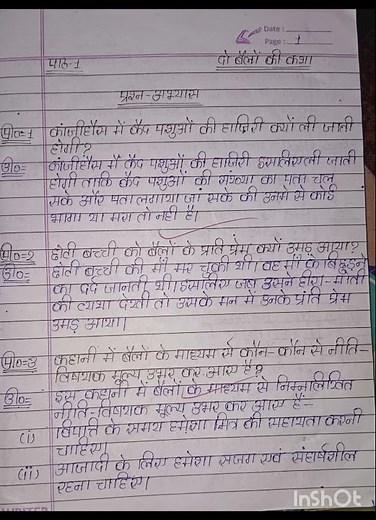 Date :
Page : 1
पाठ-1 दो बैलों की कथा
प्रश्न-अभ्यास
प्र०=1 कांजीहौस में कैद पशुओं की हाज़िरी क्यों ली जाती
होगी?
उ०= कांजीहौस में कैद पशुओं की हाजिरी इसलिए ली जाती
होगी ताकि कैद पशुओं की संख्या का पता चल
सके और पता लगाया जा सके की उनमे से कोई
भागा या मरा तो नहीं है।
प्र०=2 छोटी बच्ची को बैलों के प्रति प्रेम क्यों उमड़ आया?
उ०= छोटी बच्ची की माँ मर चुकी थी। वह माँ के बिछुड़ने
का दर्द जानती थी। इसलिए जब उसने हीरा-मोती
की व्यथा देखी तो उसके मन में उनके प्रति प्रेम
उमड़ आया।
प्र०=3 कहानी में बैलों के माध्यम से कौन-कौन से नीति-
विषयक मूल्य उभर कर आए हैं?
उ०= इस कहानी में बैलों के माध्यम से निम्नलिखित
नीति-विषयक मूल्य उभर कर आए हैं-
(i) विपत्ति के समय हमेशा मित्र की सहायता करनी
चाहिए।
(ii) आजादी के लिए हमेशा सजग एवं संघर्षशील
रहना चाहिए।
InShOt